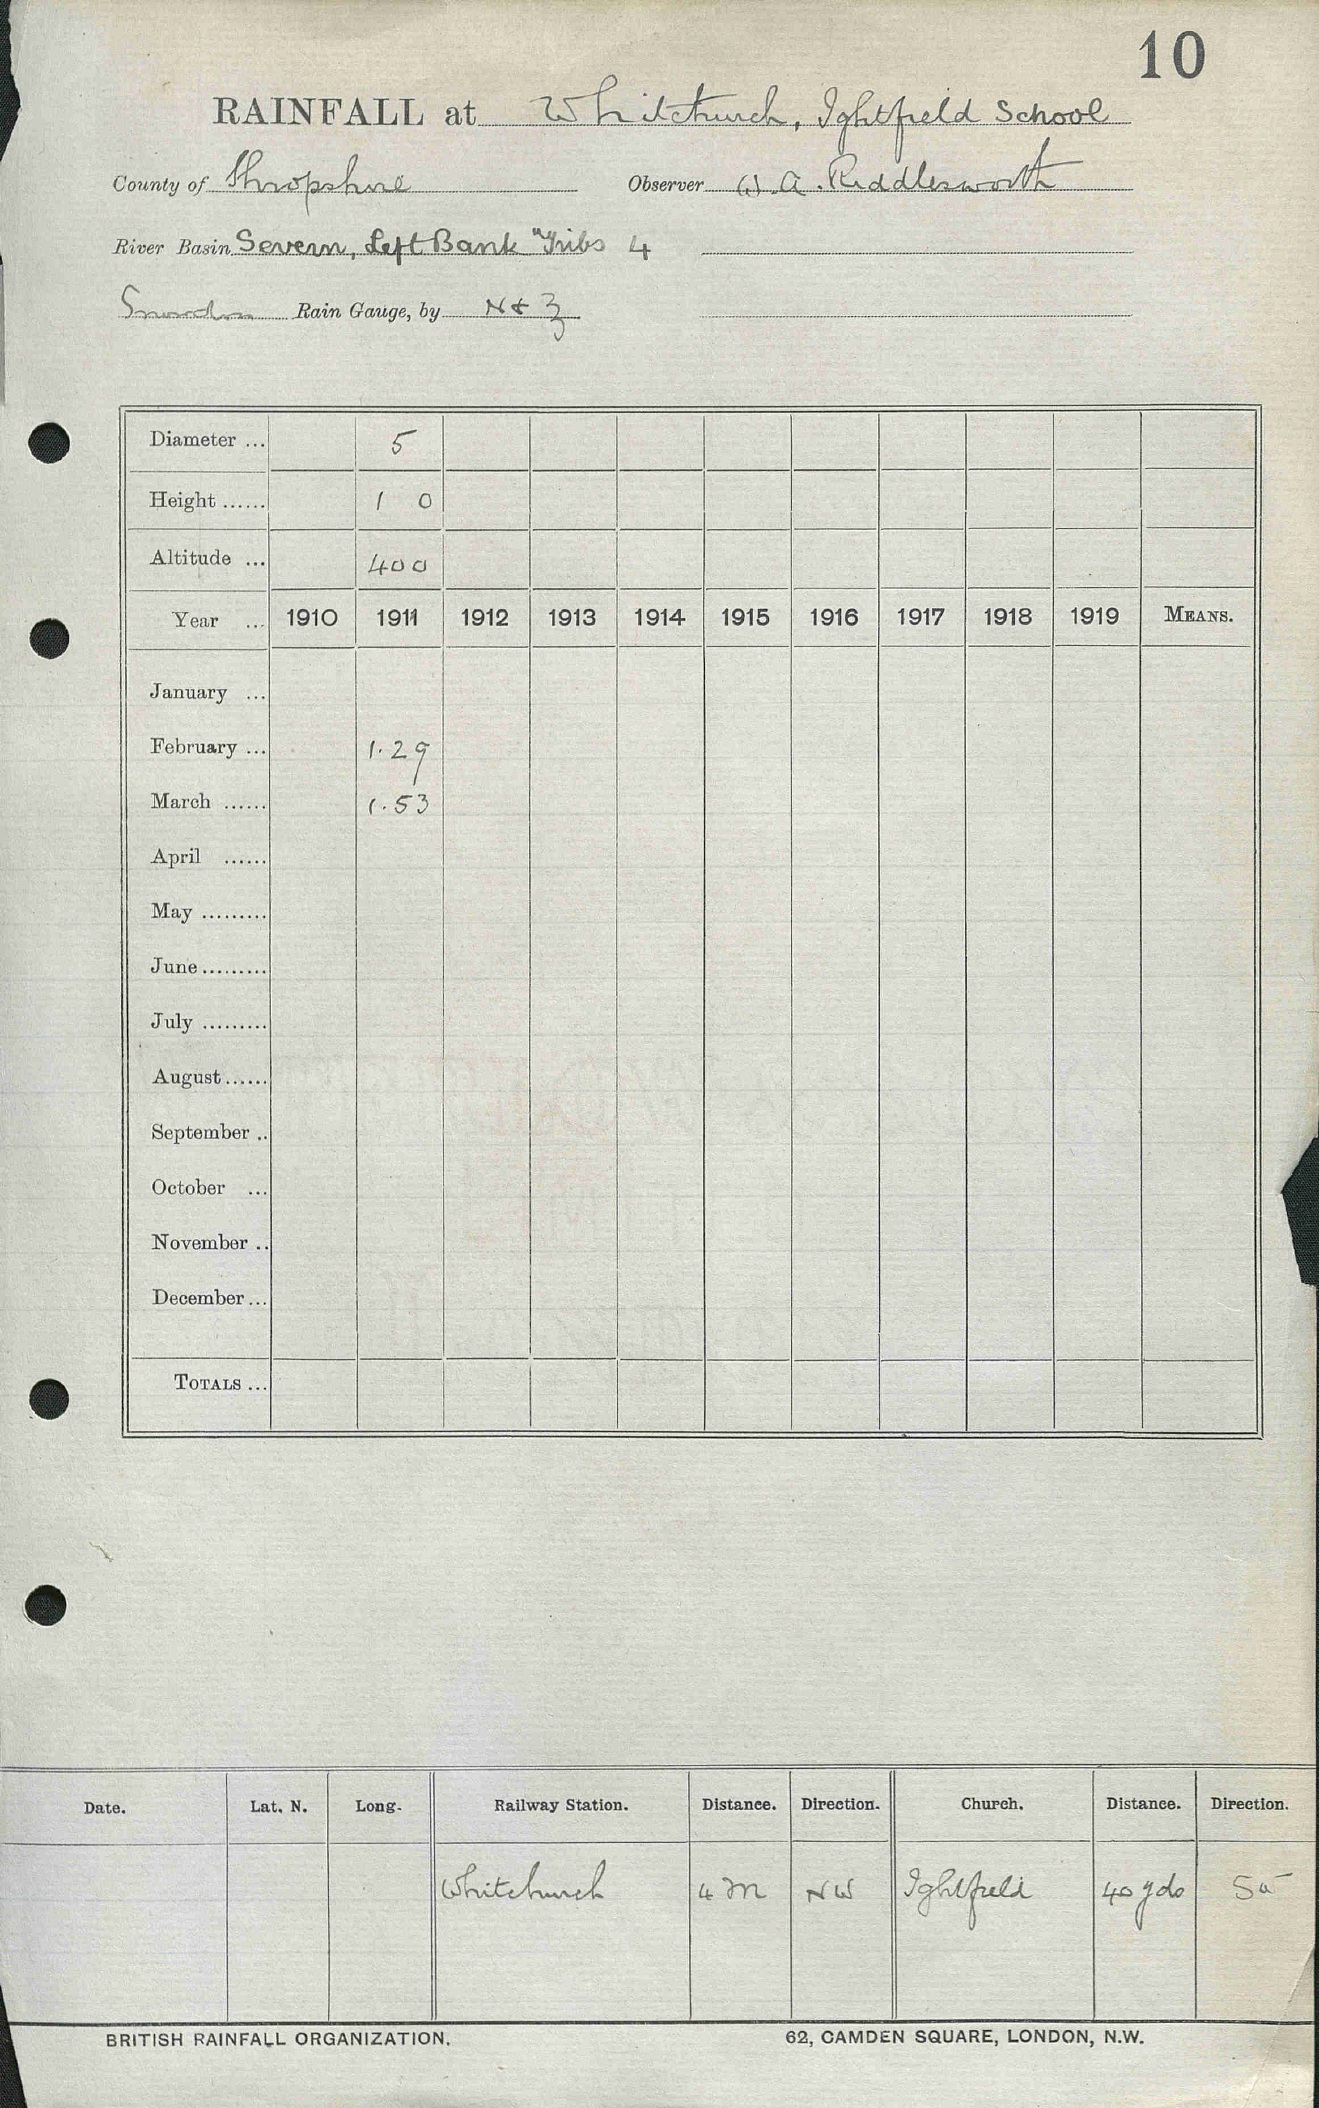 10
RAINFALL at Whitchurch, Ightfield School
County of Shropshire Observer W. A. Riddlesworth
River Basin Severn, Left Bank Tribs 4
Snowdon Rain Gauge, by N & Z
Diameter ... 5
Height ...... 1 0
Altitude ... 400
Year ... 1910 1911 1912 1913 1914 1915 1916 1917 1918 1919 MEANS.
January ...
February ... 1.29
March ...... 1.53
April ......
May .........
June .........
July .........
August ......
September ..
October ...
November ..
December ...
TOTALS ...
Date. Lat. N. Long. Railway Station. Distance. Direction. Church. Distance. Direction.
Whitchurch 4 m NW Ightfield 40 yds
BRITISH RAINFALL ORGANIZATION. 62, CAMDEN SQUARE, LONDON, N.W.